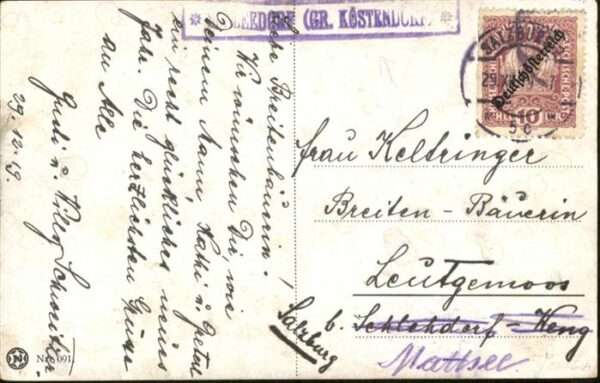 SEEDORF (GR. KÖSTENDORF)
SALZBURG
29
5 c
Deutschösterreich
10
Liebe Breitenbäuerin!
Wir wünschen Dir, wie
Deinem Mann Kathi u. 
ein recht glückliches neues
Jahr. Die herzlichsten Grüße
an Alle
Gusti u. Willy
29.12.19.
Frau Keltringer
Breiten-Bäuerin
Leutgemoos
b. Schlehdorf-Keng
Mattsee.
Salzburg